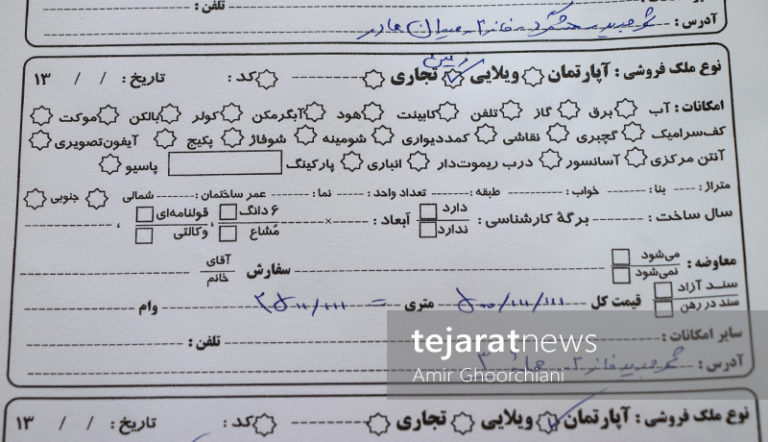 تلفن :
آدرس : شهر جدید هشتگرد - فاز ۲ - میدان مادر
نوع ملک فروشی : آپارتمان ویلایی تجاری کد : تاریخ : / / ۱۳
زمین
امکانات : آب برق گاز تلفن کابینت هود آبگرمکن کولر بالکن موکت
کف‌سرامیک گچبری نقاشی کمددیواری شومینه شوفاژ پکیج آیفون‌تصویری
آنتن مرکزی آسانسور درب ریموت‌دار انباری پارکینگ پاسیو
متراژ : بنا : خواب : طبقه : تعداد واحد : نما : عمر ساختمان : شمالی جنوبی
سال ساخت : برگهٔ کارشناسی : دارد ندارد ابعاد : × ، ۶ دانگ مُشاع ، قولنامه‌ای وکالتی ،
معاوضه : می‌شود نمی‌شود سفارش آقای خانم
سند آزاد سند در رهن قیمت کل متری = وام
سایر امکانات : تلفن :
tejaratnews
آدرس : شهر جدید فاز ۲
Amir Ghoorchiani
نوع ملک فروشی : آپارتمان ویلایی تجاری کد : تاریخ : / / ۱۳